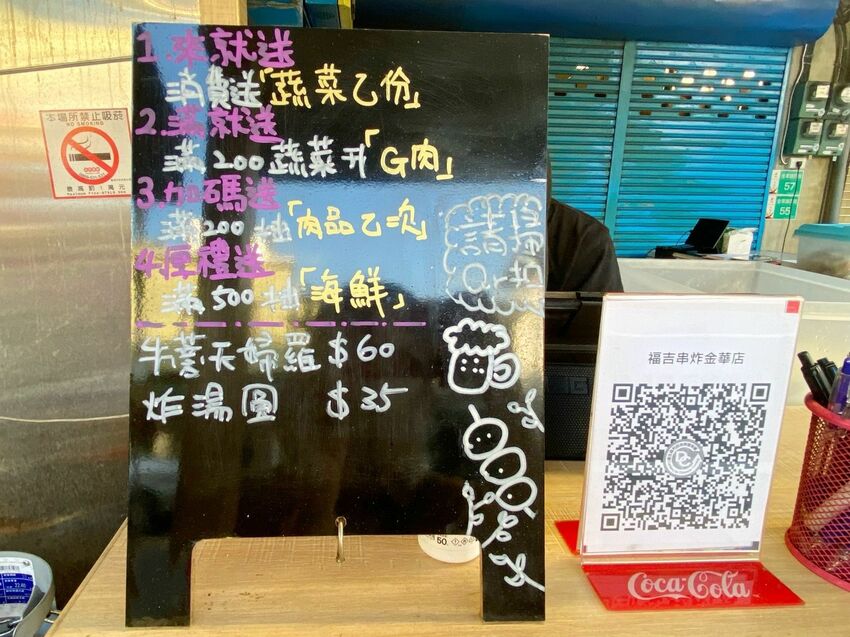 1.來就送
消費送「蔬菜乙份」
2.滿就送
滿200蔬菜升「G肉」
3.加碼送
滿200抽「肉品乙次」
4.厚禮送
滿500抽「海鮮」
牛蒡天婦羅 $60
炸湯圓 $35
本場所禁止吸菸
NO SMOKING
最高罰1萬元
福吉串炸金華店
Coca-Cola
57
55
50